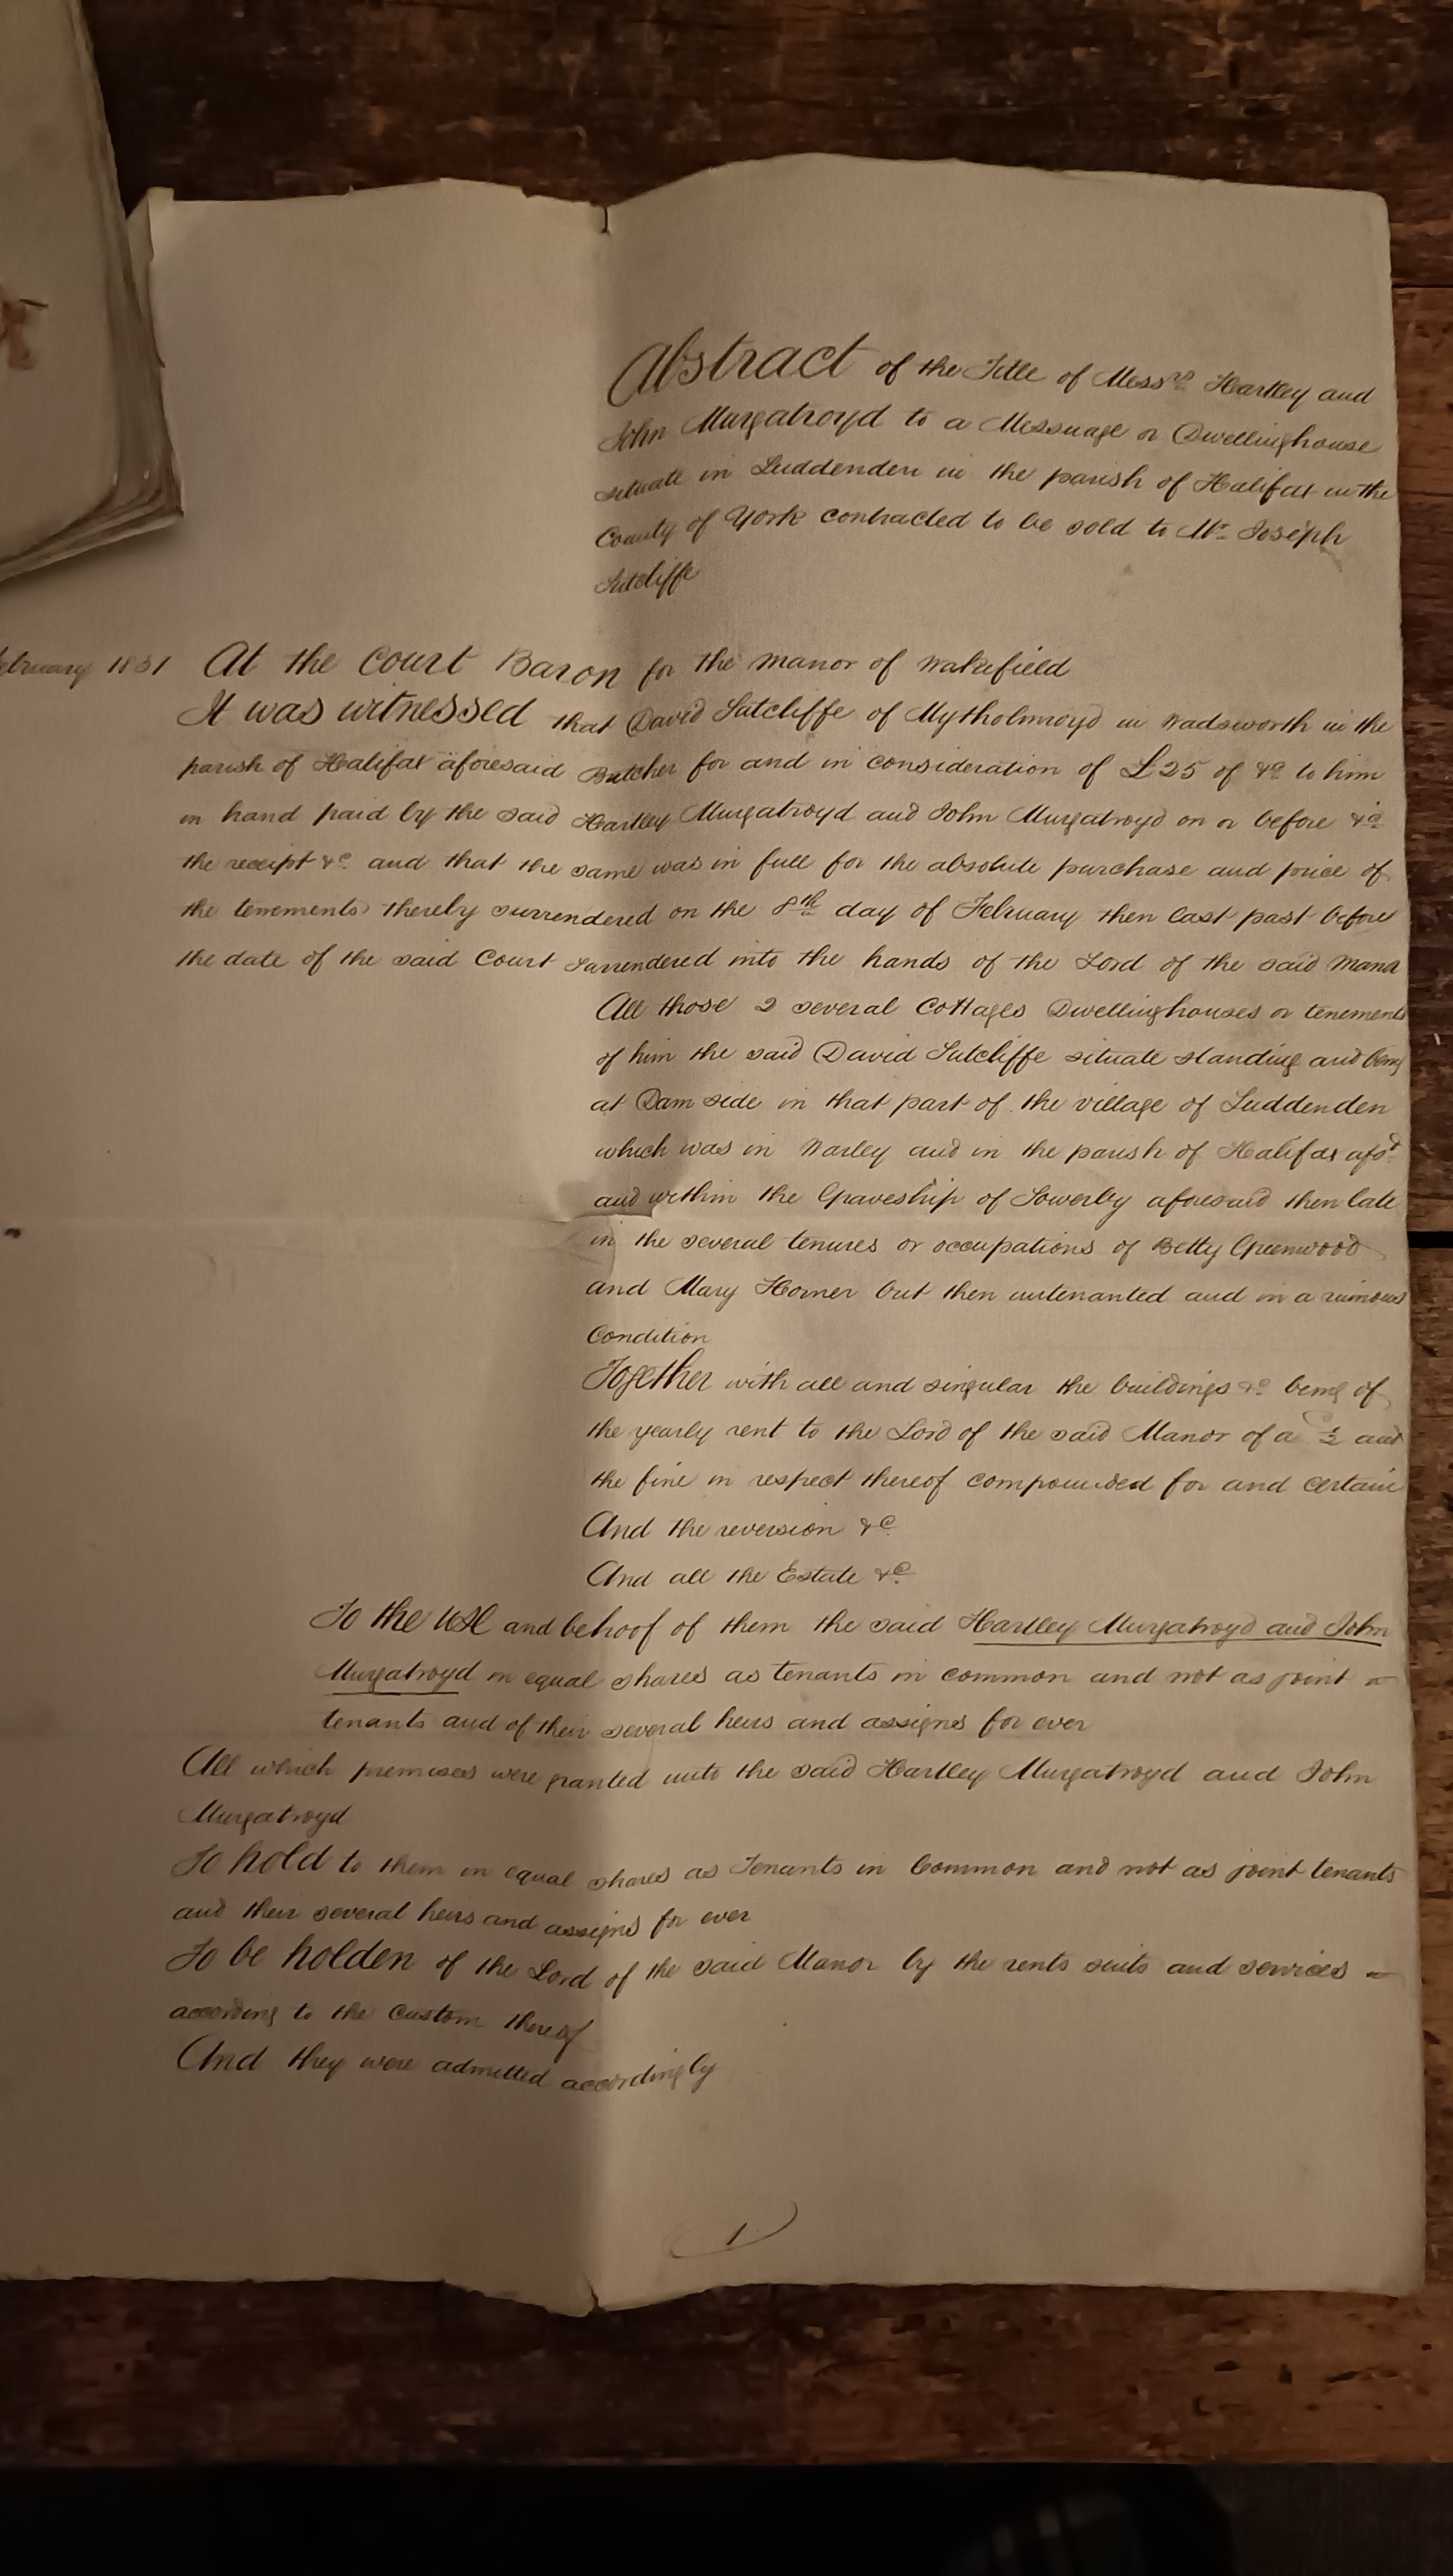 Abstract of the Title of Mess.rs Hartley and
John Murgatroyd to a Messuage or Dwellinghouse
situate in Luddenden in the parish of Halifax in the
County of York contracted to be sold to Mr. Joseph
Sutcliffe
February 1831 At the Court Baron for the Manor of Wakefield
It was witnessed that David Sutcliffe of Mytholmroyd in Wadsworth in the
parish of Halifax aforesaid Butcher for and in consideration of £25 of &c to him
in hand paid by the said Hartley Murgatroyd and John Murgatroyd on or before &c
the receipt &c and that the same was in full for the absolute purchase and price of
the tenements thereby surrendered on the 8th day of February then last past before
the date of the said Court Surrendered into the hands of the Lord of the said Manor
All those 2 several Cottages Dwellinghouses or tenements
of him the said David Sutcliffe situate standing and being
at Dam side in that part of the village of Luddenden
which was in Warley and in the parish of Halifax afsd
and within the Graveship of Sowerby aforesaid then late
in the several tenures or occupations of Betty Greenwood
and Mary Horner but then untenanted and in a ruinous
Condition
Together with all and singular the buildings &c being of
the yearly rent to the Lord of the said Manor of a ½ and
the fine in respect thereof compounded for and certain
And the reversion &c
And all the Estate &c
To the use and behoof of them the said Hartley Murgatroyd and John
Murgatroyd in equal shares as tenants in common and not as joint
tenants and of their several heirs and assigns for ever
All which premises were granted unto the said Hartley Murgatroyd and John
Murgatroyd
To hold to them in equal shares as Tenants in Common and not as joint tenants
and their several heirs and assigns for ever
To be holden of the Lord of the said Manor by the rents suits and services
according to the Custom thereof
And they were admitted accordingly
1